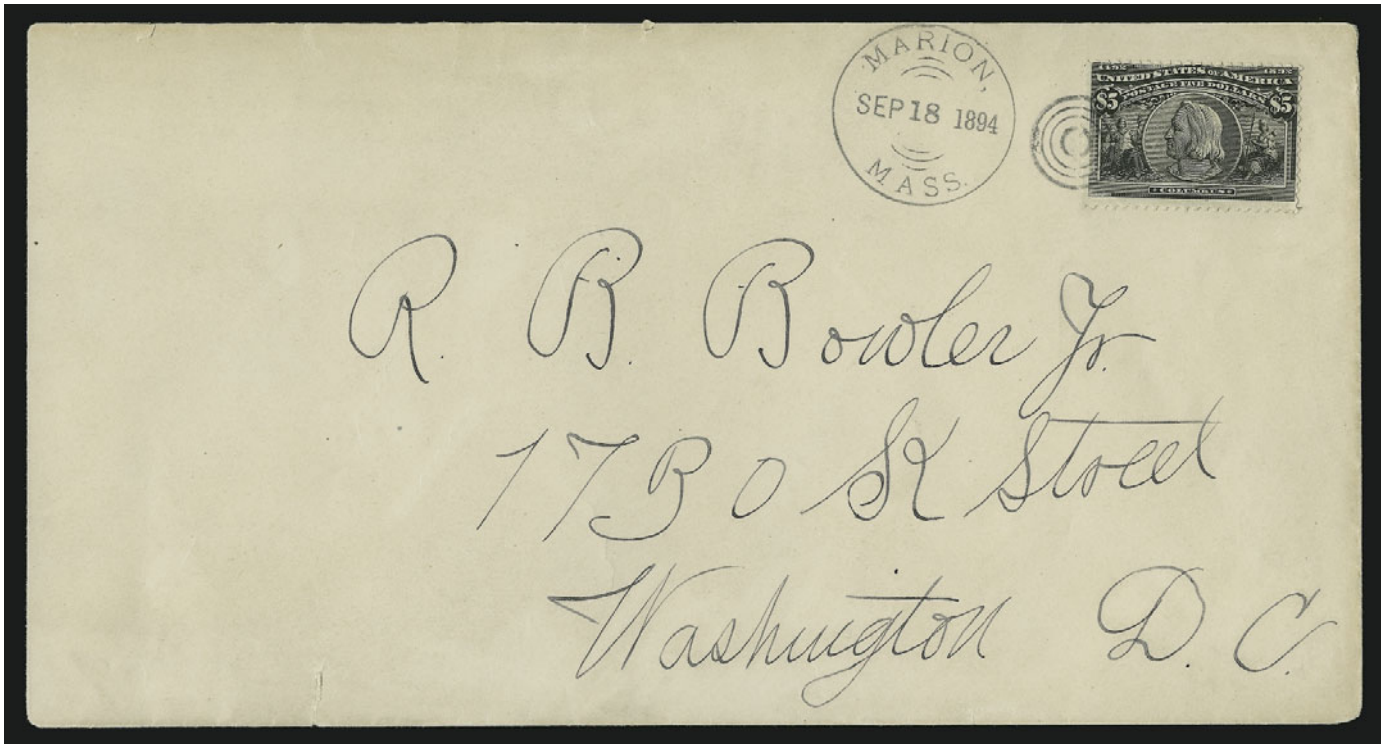 MARION,
SEP 18 1894
MASS.
1492 1892
UNITED STATES OF AMERICA
POSTAGE FIVE DOLLARS
$5 $5
COLUMBUS
R. B. Bowler Jr.
1730 K Street
Washington D. C.